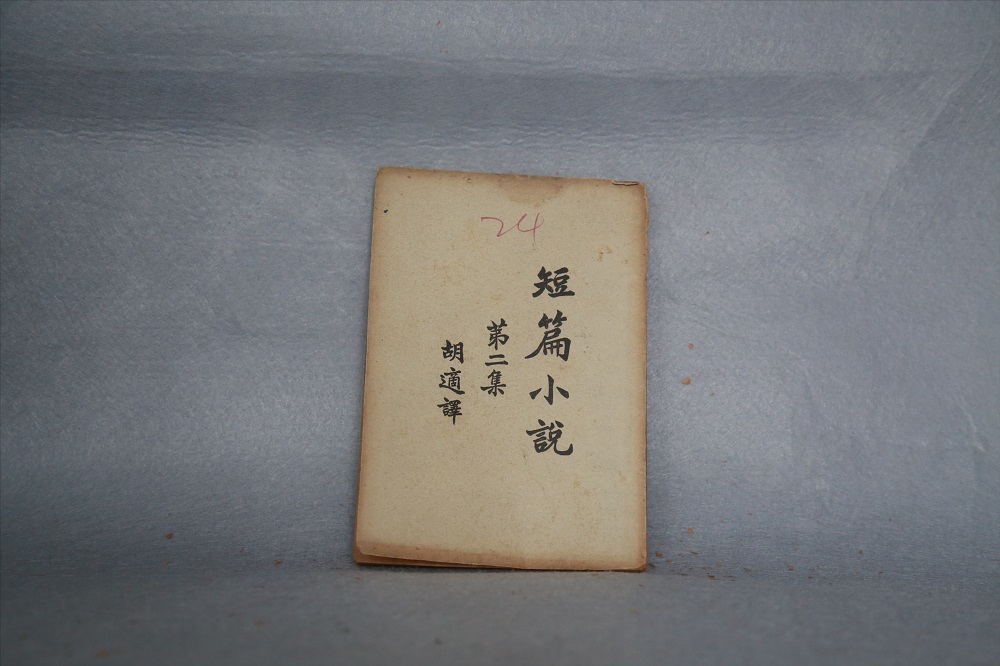 24
短篇小說
第二集
胡適譯